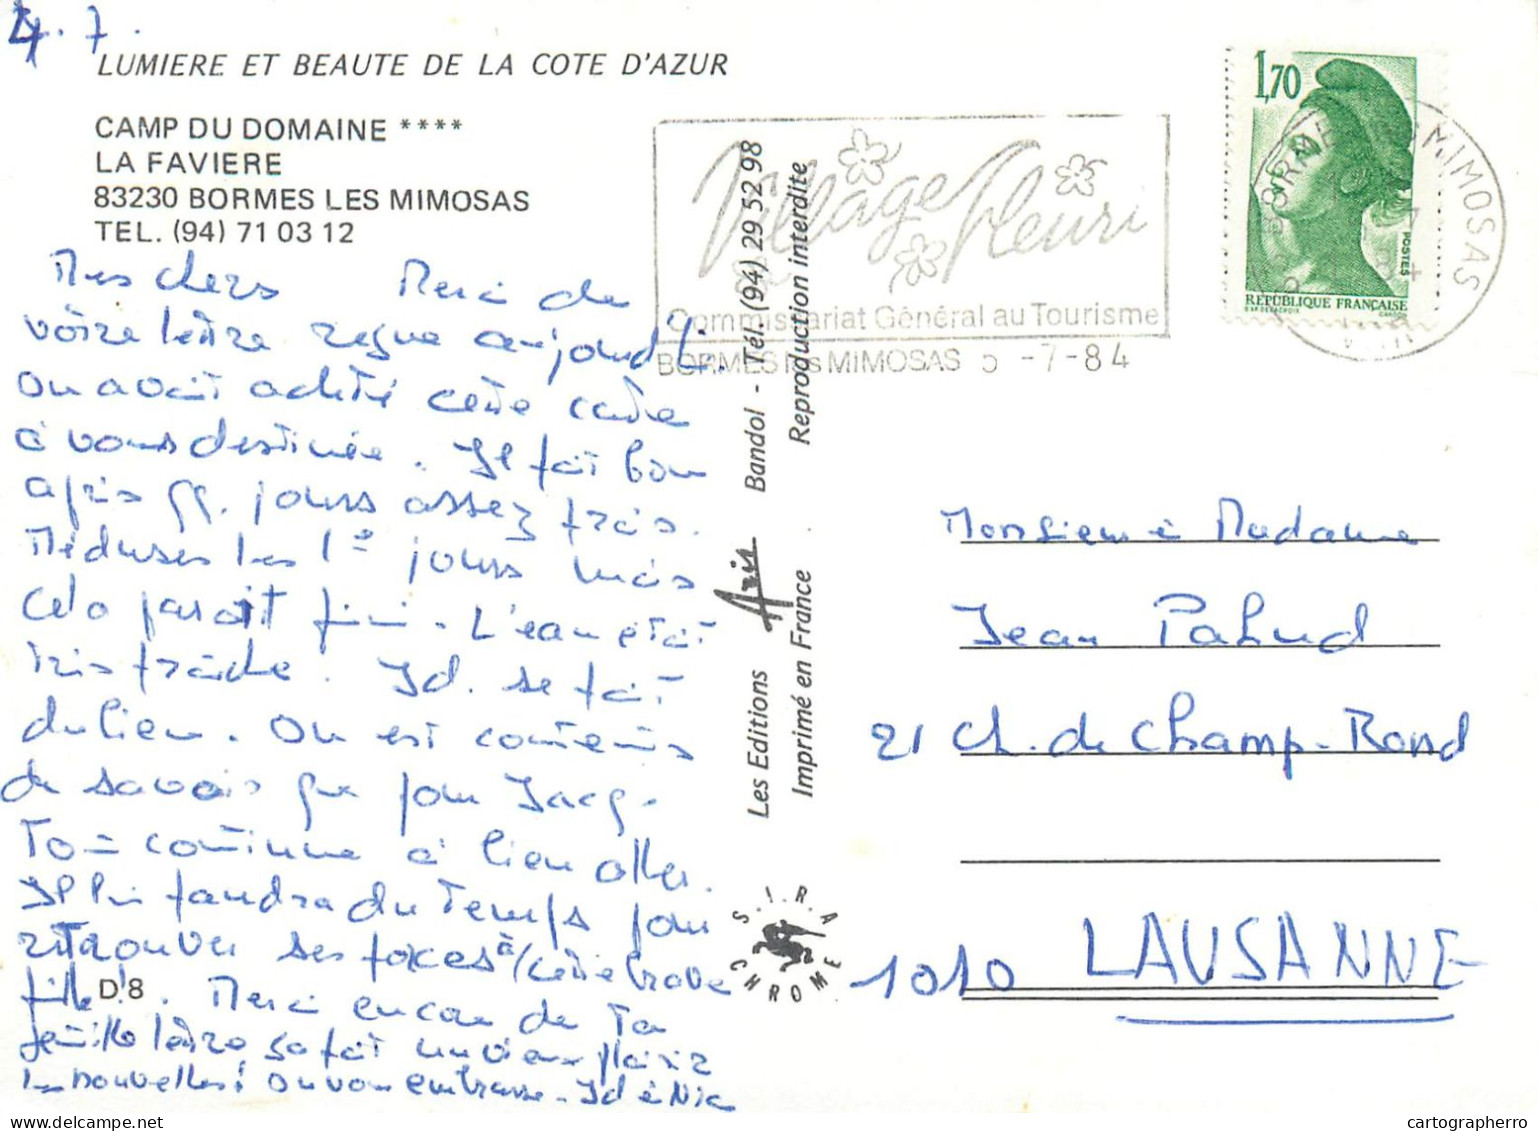 4.7.
LUMIERE ET BEAUTE DE LA COTE D'AZUR
CAMP DU DOMAINE ****
LA FAVIERE
83230 BORMES LES MIMOSAS
TEL. (94) 71 03 12
Mes chers Merci de
votre lettre reçue aujourd'
On avait acheté cette carte
à vous destinée. Il fait bon
après qq. jours assez frais.
Méduses les 1e jours mais
cela paraît fini. L'eau était
très fraîche. Id. se fait
du lien. On est contents
de savoir que pour Jacq.
tout continue à bien aller.
Il lui faudra du temps pour
retrouver ses forces à cette brave
fille. Merci encore de ta
gentille lettre ça fait un vieux plaisir
les nouvelles! On vous embrasse. Id & Nic
D.8
Village fleuri
Commissariat Général au Tourisme
BORMES les MIMOSAS 5 -7-84
1,70
POSTES
RÉPUBLIQUE FRANÇAISE
BORMES MIMOSAS
Les Editions Aris Bandol - Tél. (94) 29 52 98
Imprimé en France Reproduction interdite
S.I.R.A
CHROME
Monsieur & Madame
Jean Pahud
21 Ch. de Champ-Rond
1010 LAUSANNE
cartographerro.delcampe.net